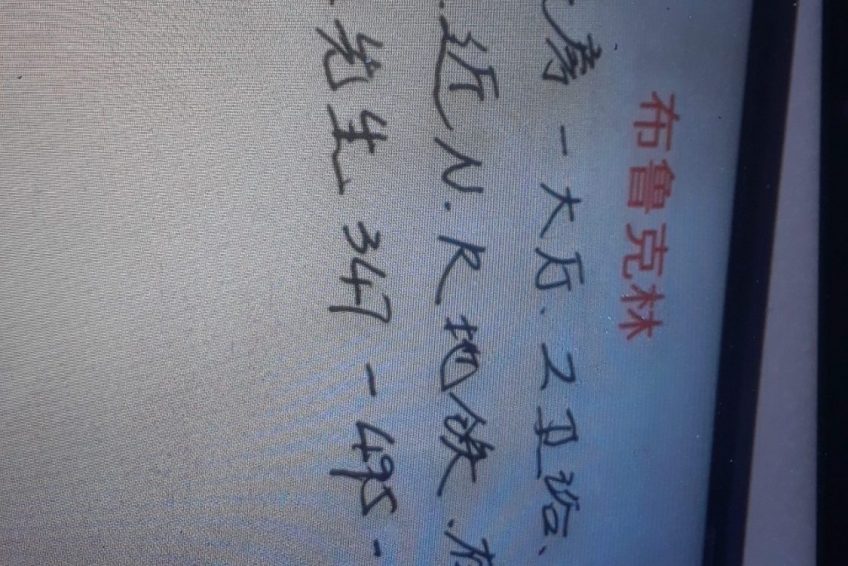 布鲁克林
房一大厅、2卫浴、
近N.R地铁.有
先生347-495-